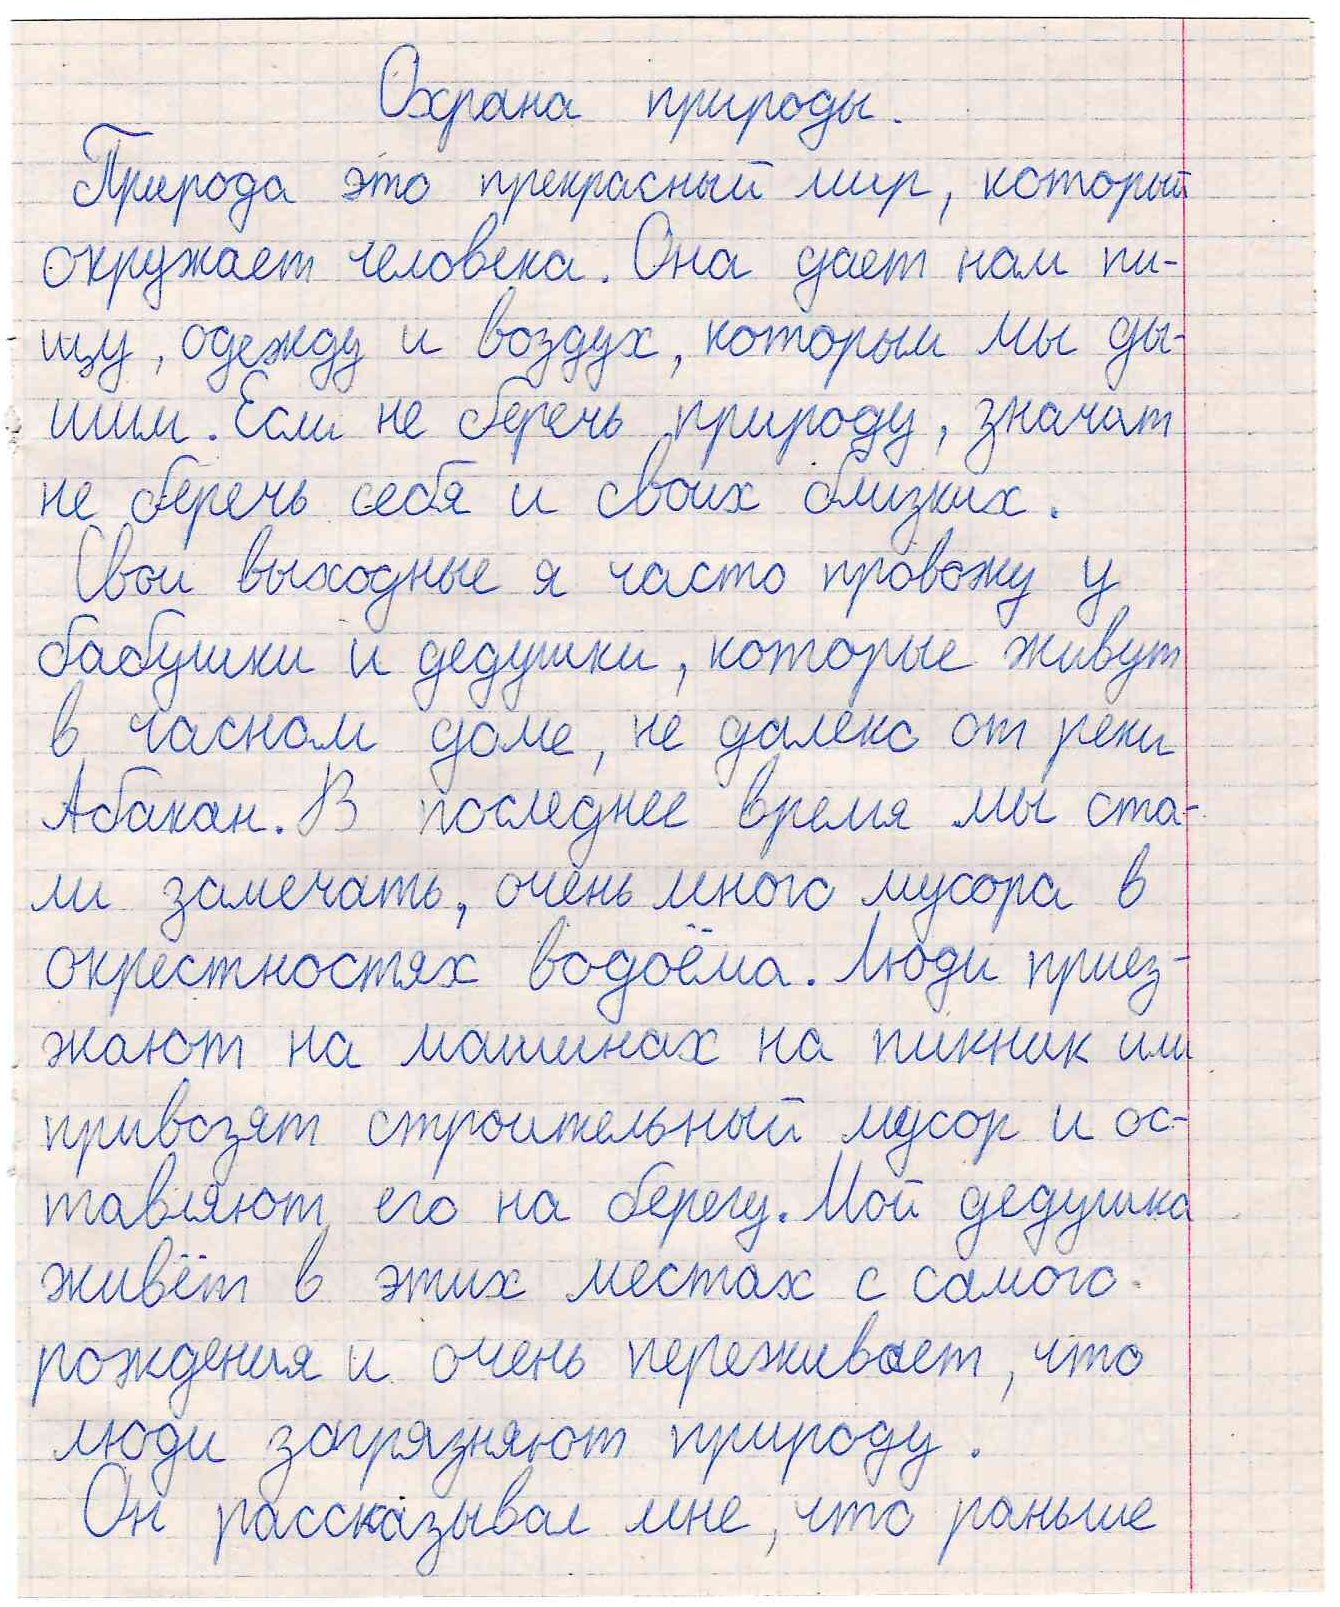 Охрана природы.
Природа это прекрасный мир, который
окружает человека. Она дает нам пи-
щу, одежду и воздух, которым мы ды-
шим. Если не беречь природу, значат
не беречь себя и своих близких.
Свои выходные я часто провожу у
бабушки и дедушки, которые живут
в часном доме, не далеко от реки
Абакан. В последнее время мы ста-
ли замечать, очень много мусора в
окрестностях водоёма. Люди приез-
жают на машинах на пикник или
привозят строительный мусор и ос-
тавляют его на берегу. Мой дедушка
живёт в этих местах с самого
рождения и очень переживает, что
люди загрязняют природу.
Он рассказывал мне, что раньше